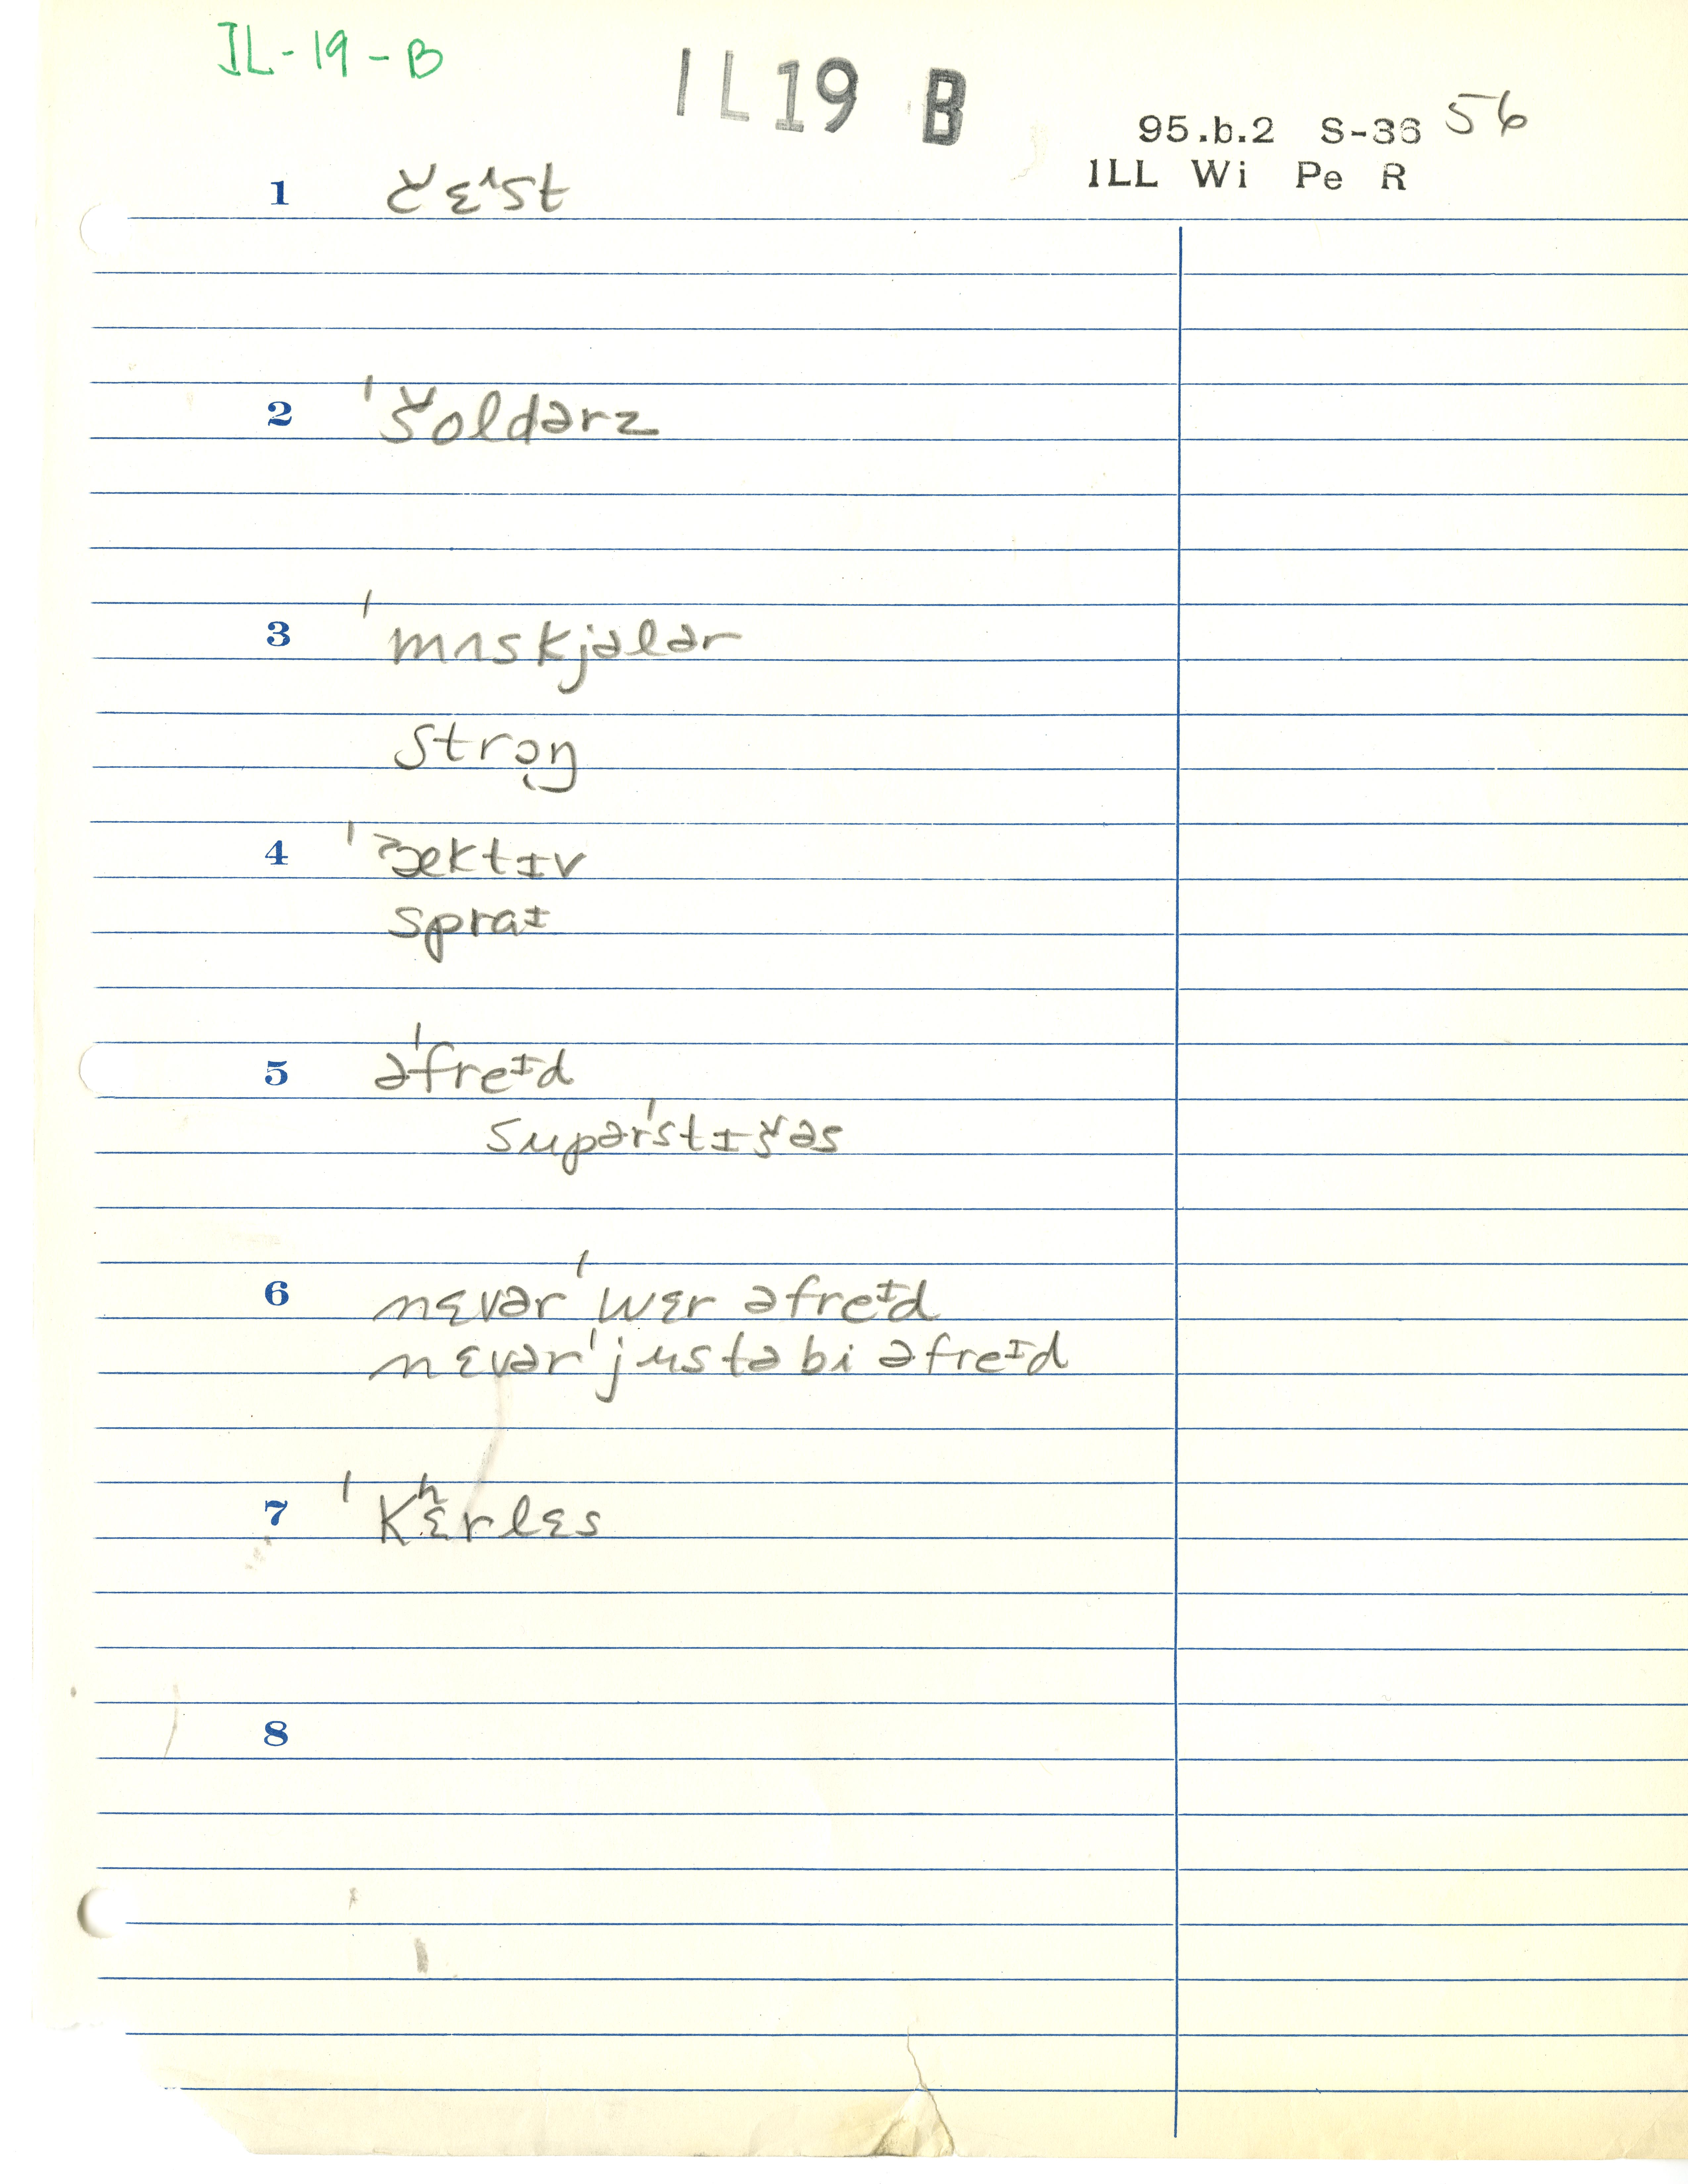 IL-19-B
IL19 B
95.b.2 S-36 56
ILL Wi Pe R
1 čɛᶦst
2 ˈšoldərz
3 ˈmʌskjələr
strɔ̨ŋ
4 ˈæktɪv
spraᶦ
5 əˈfreᶦd
supərˈstɪšəs
6 nɛvər ˈwɛr əfreᶦd
nɛvər ˈjustə bi əfreᶦd
7 ˈkʰɛrlɛs
8